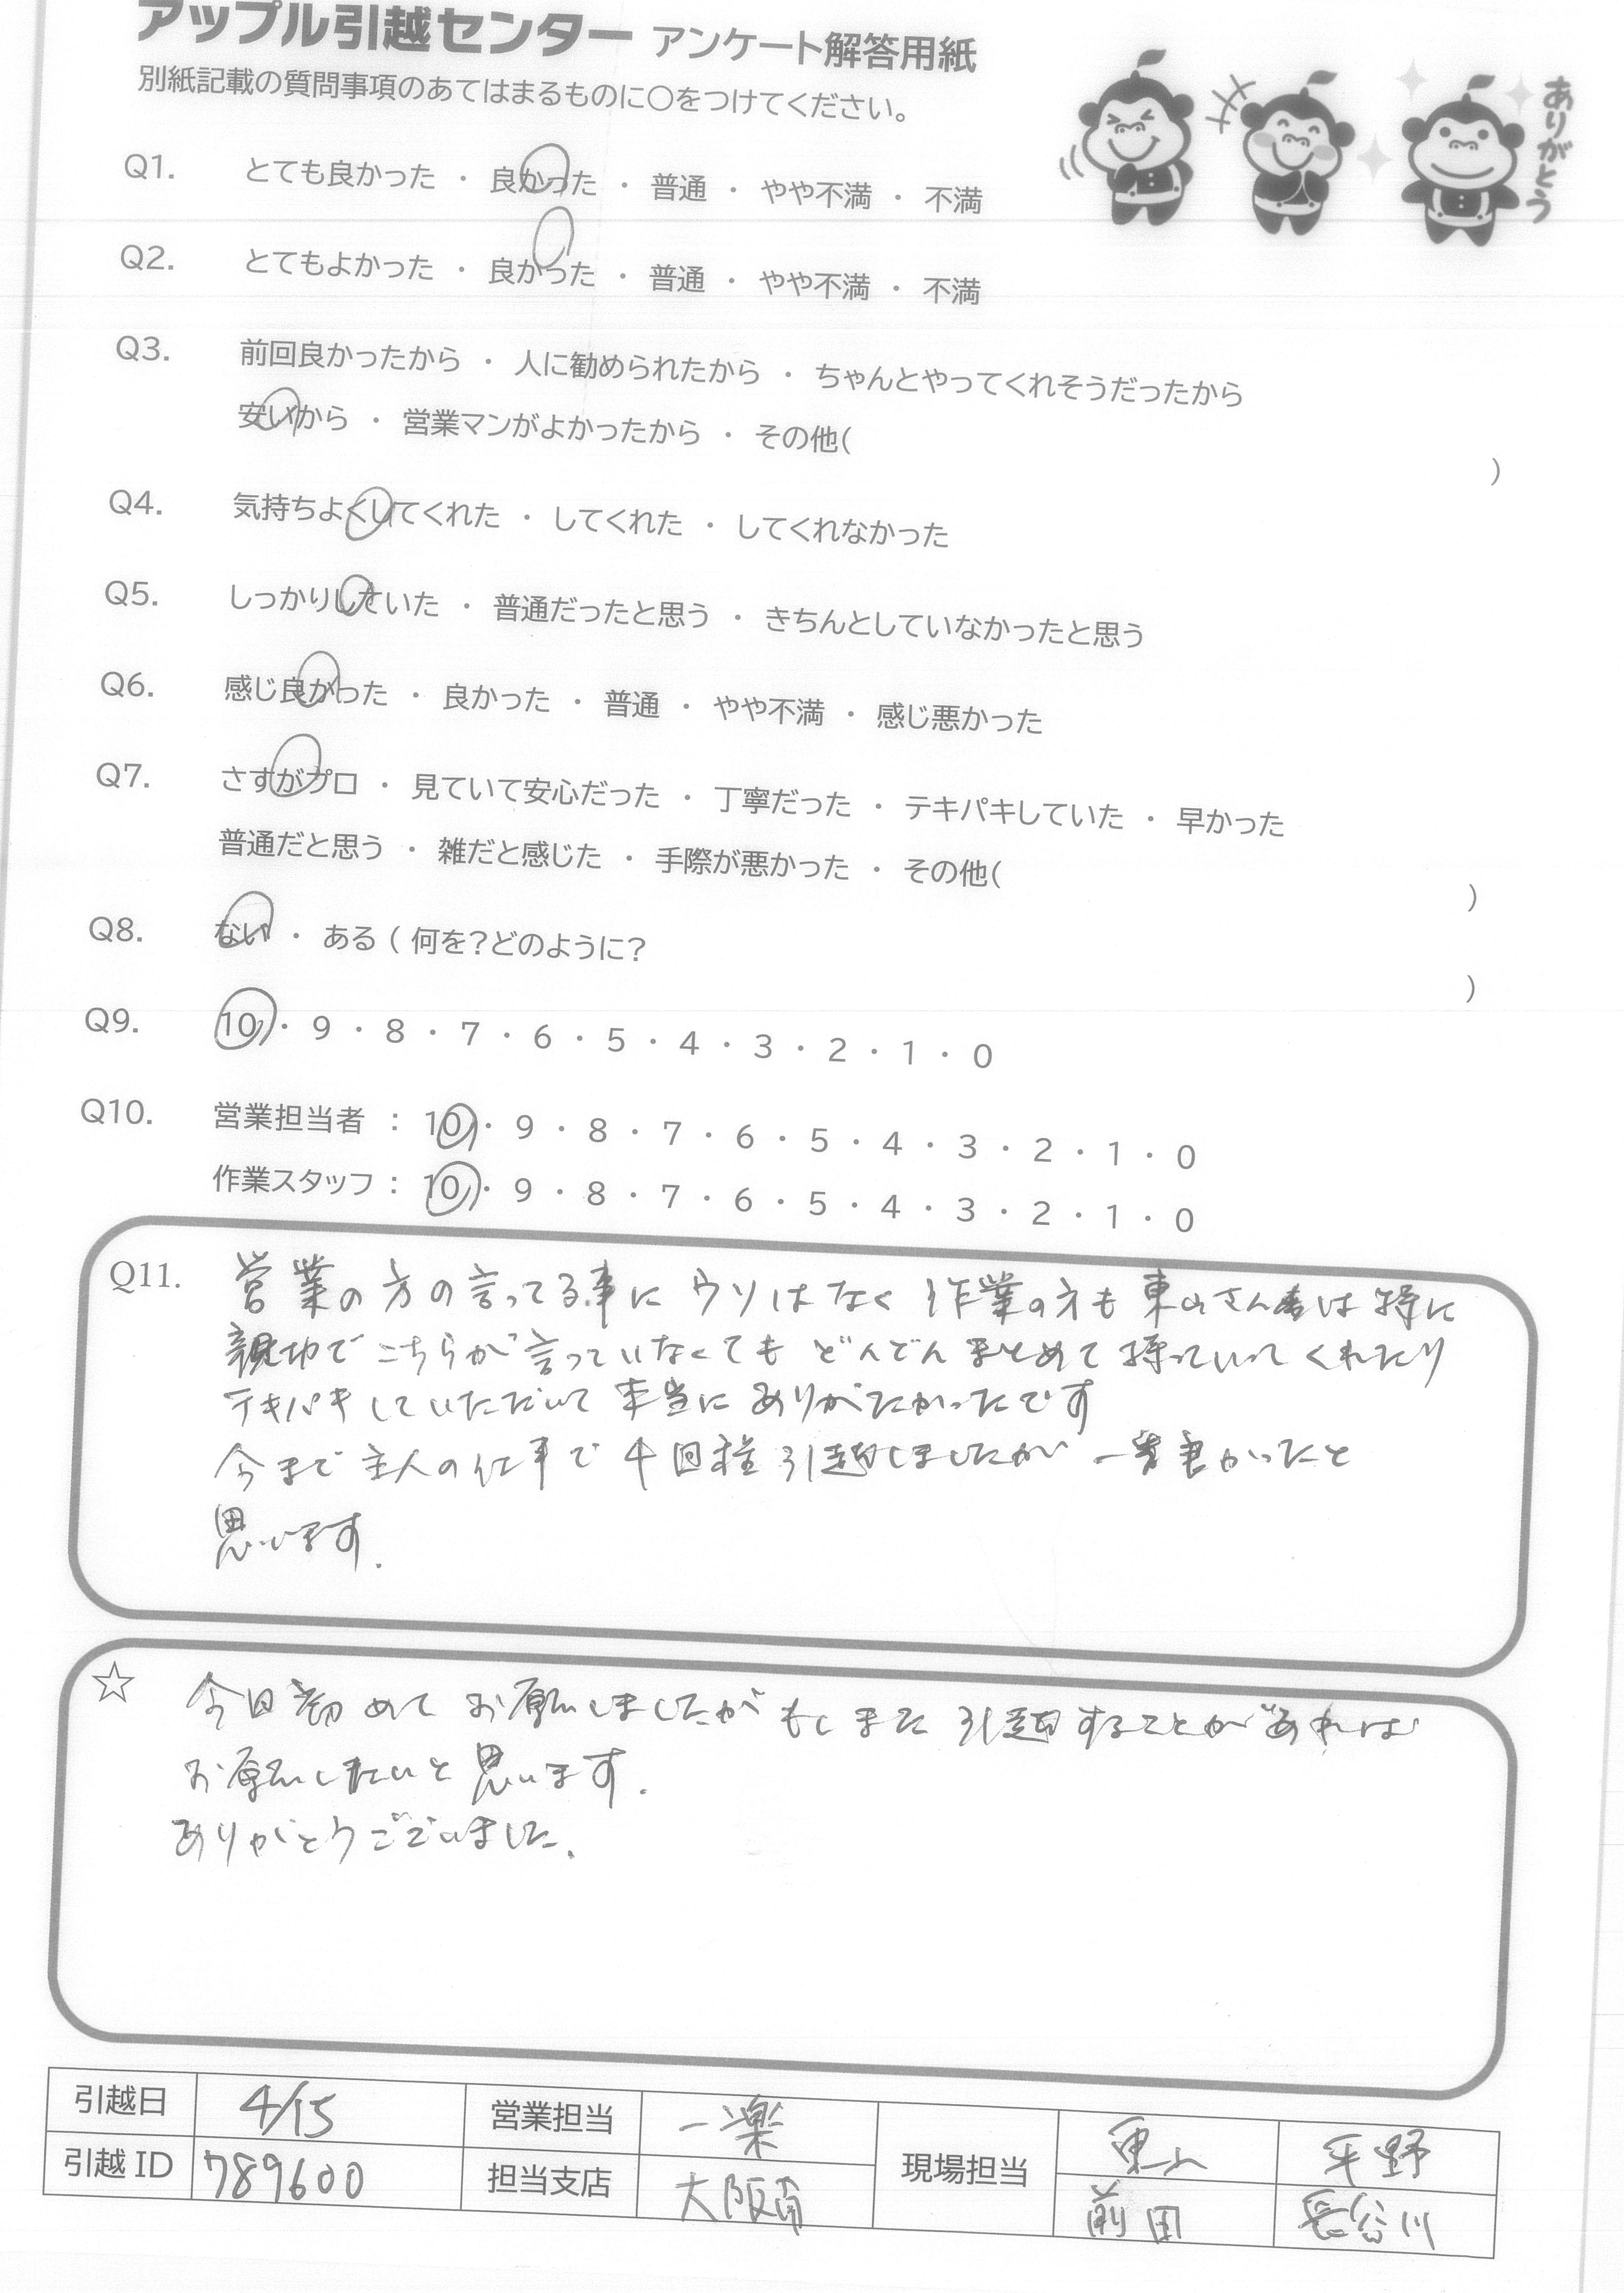 アップル引越センター アンケート解答用紙
別紙記載の質問事項のあてはまるものに〇をつけてください。
ありがとう
Q1. とても良かった ・ 良かった ・ 普通 ・ やや不満 ・ 不満
Q2. とてもよかった ・ 良かった ・ 普通 ・ やや不満 ・ 不満
Q3. 前回良かったから ・ 人に勧められたから ・ ちゃんとやってくれそうだったから
安いから ・ 営業マンがよかったから ・ その他( )
Q4. 気持ちよくしてくれた ・ してくれた ・ してくれなかった
Q5. しっかりしていた ・ 普通だったと思う ・ きちんとしていなかったと思う
Q6. 感じ良かった ・ 良かった ・ 普通 ・ やや不満 ・ 感じ悪かった
Q7. さすがプロ ・ 見ていて安心だった ・ 丁寧だった ・ テキパキしていた ・ 早かった
普通だと思う ・ 雑だと感じた ・ 手際が悪かった ・ その他( )
Q8. ない ・ ある ( 何を?どのように? )
Q9. 10 ・ 9 ・ 8 ・ 7 ・ 6 ・ 5 ・ 4 ・ 3 ・ 2 ・ 1 ・ 0
Q10. 営業担当者 : 10 ・ 9 ・ 8 ・ 7 ・ 6 ・ 5 ・ 4 ・ 3 ・ 2 ・ 1 ・ 0
作業スタッフ : 10 ・ 9 ・ 8 ・ 7 ・ 6 ・ 5 ・ 4 ・ 3 ・ 2 ・ 1 ・ 0
Q11. 営業の方の言ってる事に ウソはなく 作業の方も 東山さんは 特に
親切で こちらが 言っていなくても どんどん まとめて 持っていってくれたり
テキパキしていただいて 本当に ありがたかったです
今まで 主人の仕事で 4回程 引越しましたが 一番良かったと
思います.
☆ 今回初めて お願いしましたが もしまた 引越することがあれば
お願いしたいと思います.
ありがとうございました.
引越日 4/15 営業担当 一楽 現場担当 東山 平野
引越 ID 789600 担当支店 大阪南 前田 長谷川